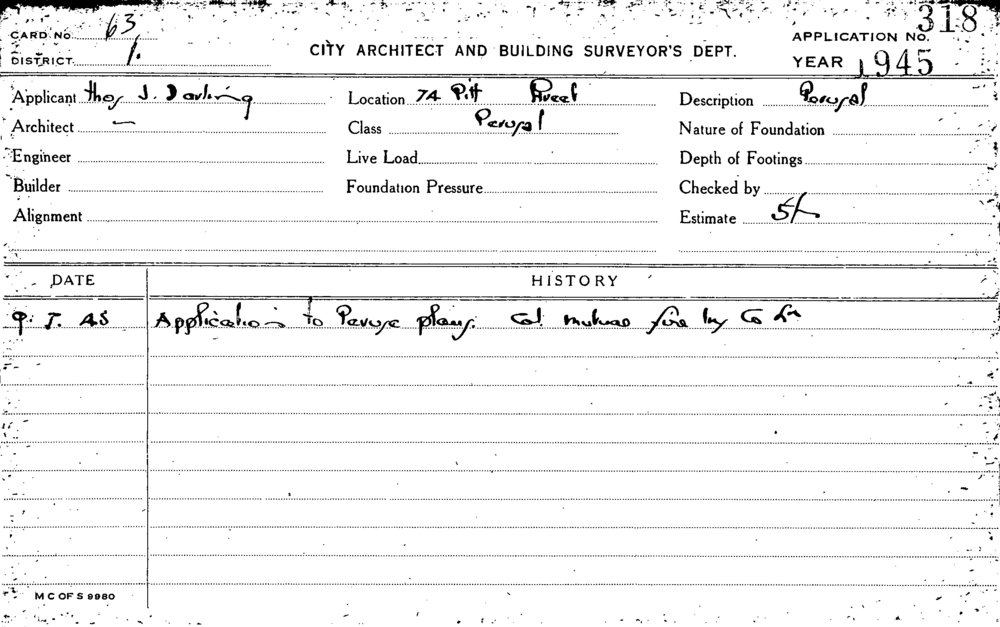 CARD NO. 63
DISTRICT. 1.
CITY ARCHITECT AND BUILDING SURVEYOR'S DEPT.
APPLICATION NO. 318
YEAR 1945
Applicant Thos J. Darling
Location 74 Pitt Street
Description Perusal
Architect —
Class Perusal
Nature of Foundation
Engineer
Live Load
Depth of Footings
Builder
Foundation Pressure
Checked by
Alignment
Estimate 5/-
DATE
HISTORY
9. 7. 45 Application to Peruse plans. Col. Mutual fire Ins Co Ltd
M C OF S 9980